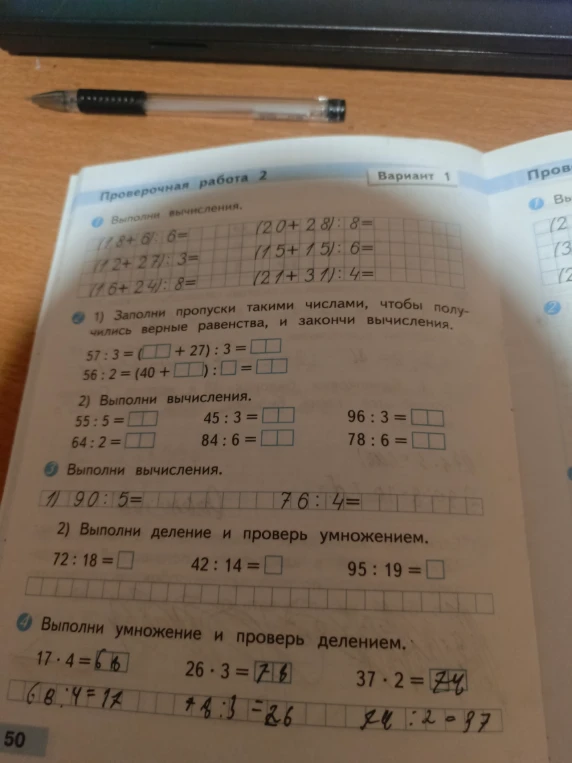 Проверочная работа 2 Вариант 1
1 Выполни вычисления.
(18+6):6= (20+28):8=
(12+27):3= (15+15):6=
(16+24):8= (21+31):4=
2 1) Заполни пропуски такими числами, чтобы полу-
чились верные равенства, и закончи вычисления.
57 : 3 = ( + 27) : 3 =
56 : 2 = (40 + ) : =
2) Выполни вычисления.
55 : 5 = 45 : 3 = 96 : 3 =
64 : 2 = 84 : 6 = 78 : 6 =
3 Выполни вычисления.
1) 90:5= 76:4=
2) Выполни деление и проверь умножением.
72 : 18 = 42 : 14 = 95 : 19 =
4 Выполни умножение и проверь делением.
17 · 4 = 68 26 · 3 = 78 37 · 2 = 74
68:4=17 78:3=26 74:2=37
50
Пров
1 Вы
(2
(3
(2
2